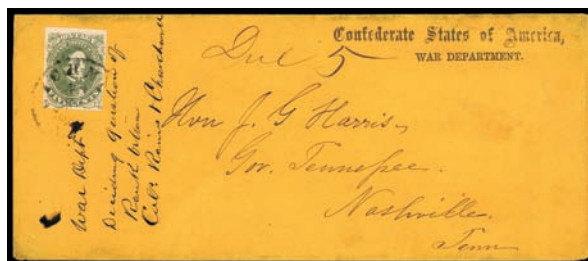 Confederate States of America,
WAR DEPARTMENT.
Due 5
Hon J. G Harris
Gov. Tennessee.
Nashville.
Tenn
War Dept
Deciding question of
Rank between
Cols Rains &